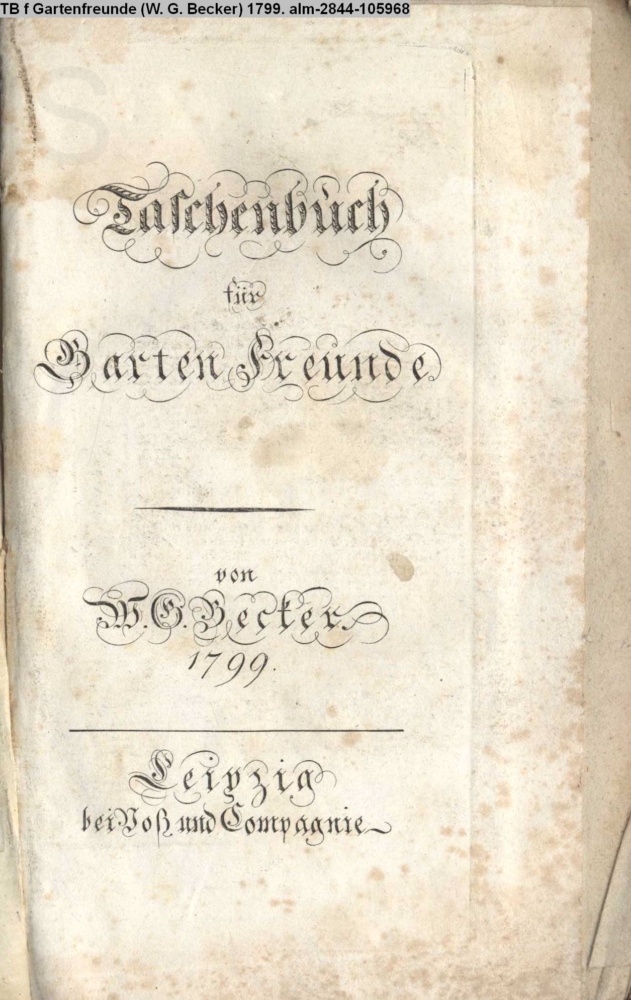 TB f Gartenfreunde (W. G. Becker) 1799. alm-2844-105968
Taschenbuch
für
Garten Freunde
von
W. G. Becker
1799.
Leipzig
bei Voß und Compagnie